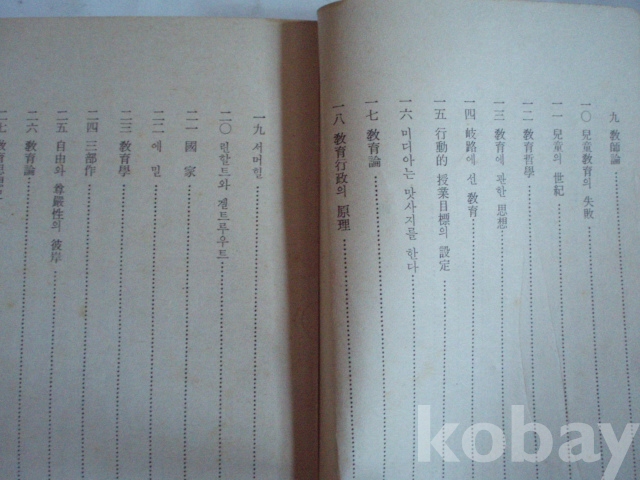 九 教師論
一〇 兒童教育의 失敗
一一 兒童의 世紀
一二 教育哲學
一三 教育에 관한 思想
一四 岐路에 선 教育
一五 行動的 授業目標의 設定
一六 미디아는 맛사지를 한다
一七 教育論
一八 敎育行政의 原理
一九 서머힐
二〇 린할트와 겔트루우트
二一 國家
二二 에밀
二三 教育學
二四 三部作
二五 自由와 尊嚴性의 彼岸
二六 教育論
二七
kobay